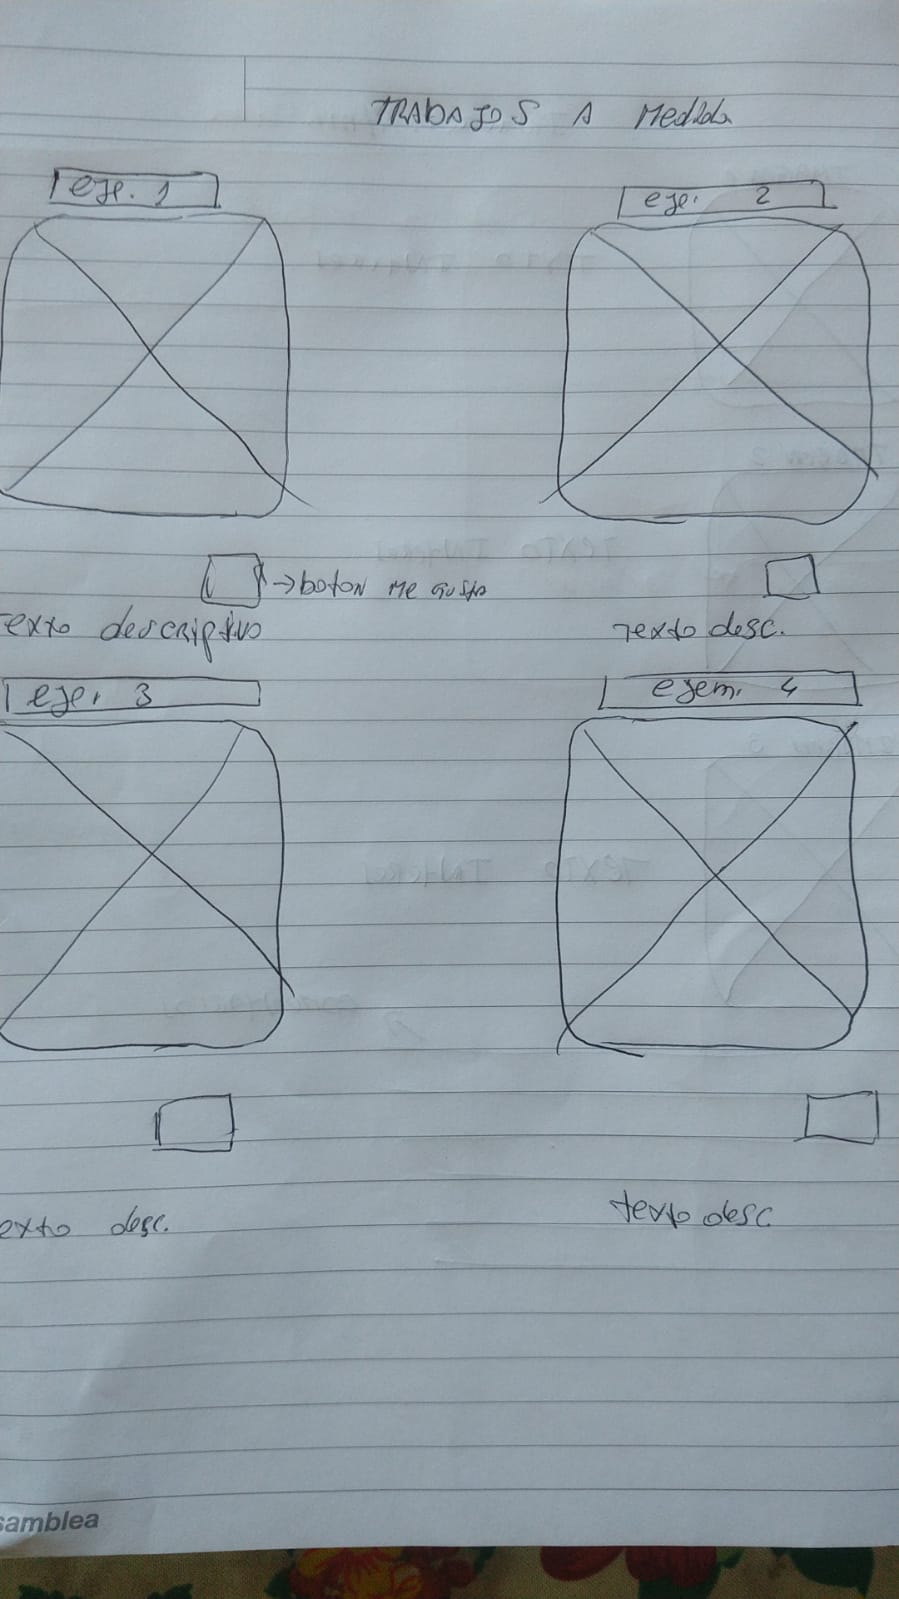 TRABAJOS A Medida
eje. 1
eje. 2
boton me gusta
texto descriptivo
Texto desc.
eje. 3
ejem. 4
exto desc.
texto desc
samblea